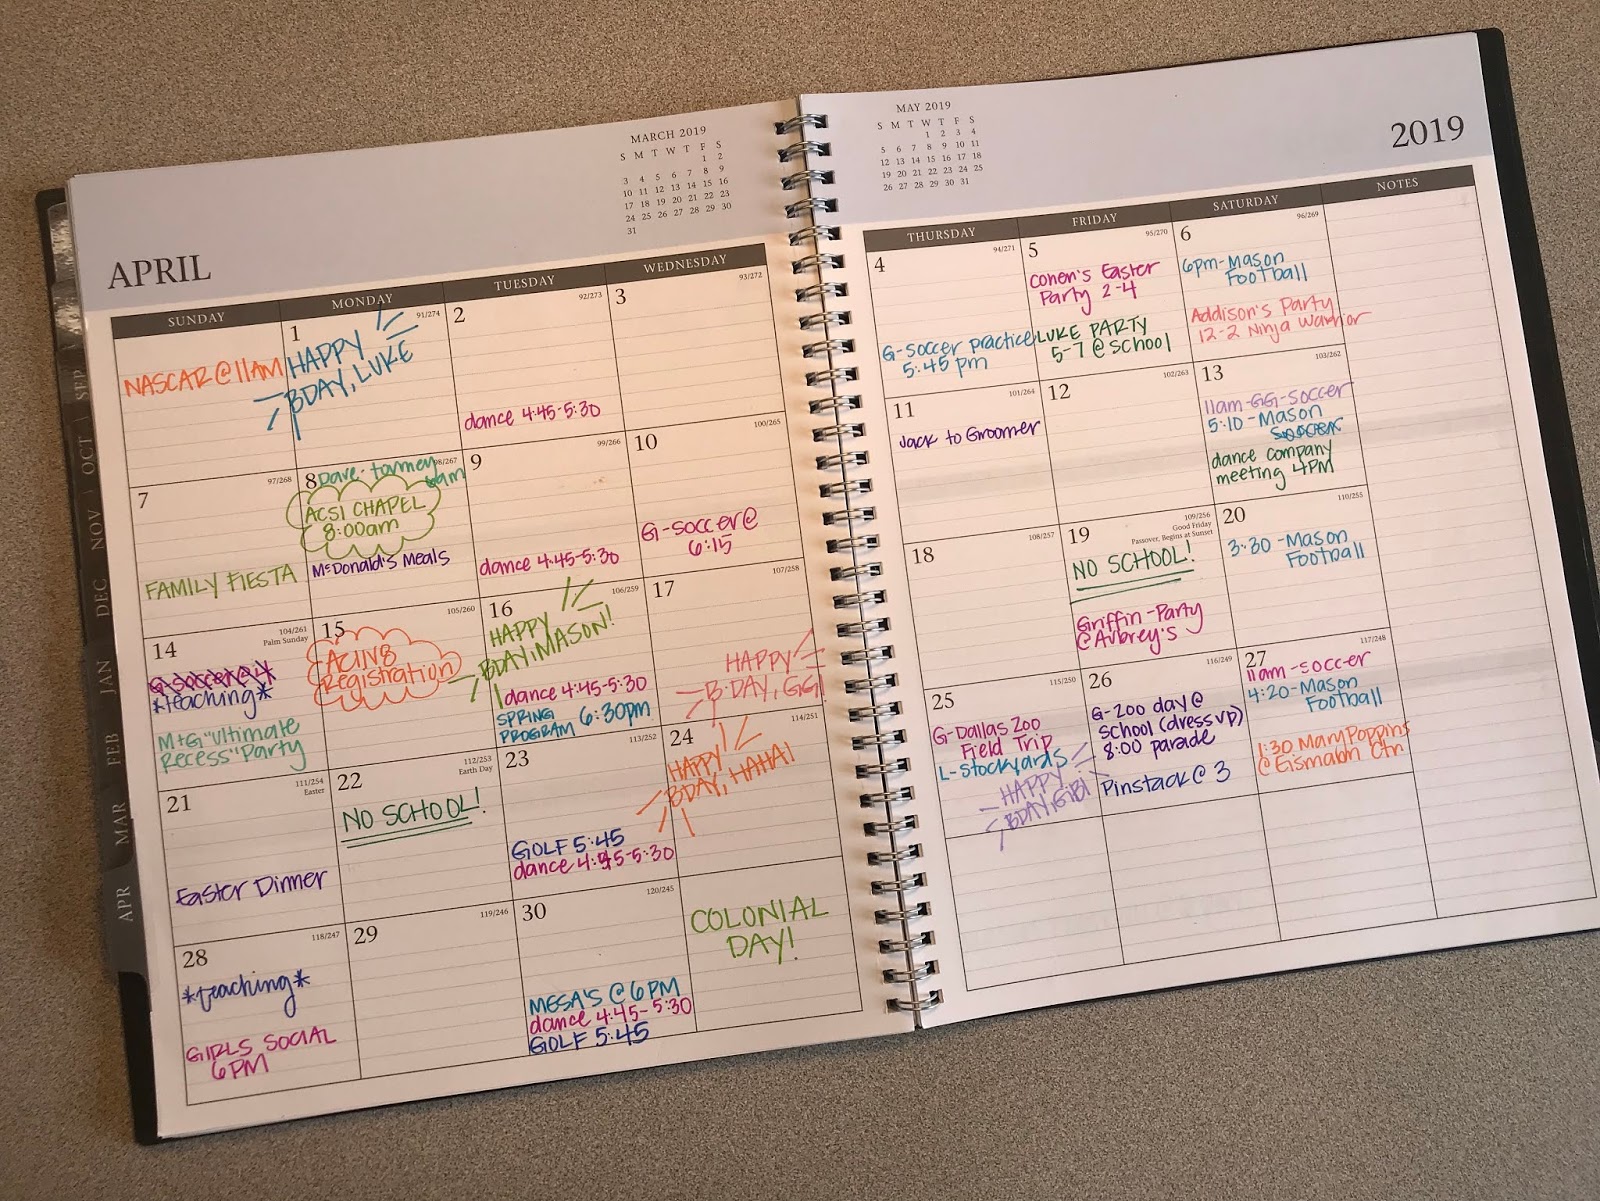 APRIL
MARCH 2019
S M T W T F S
1 2
3 4 5 6 7 8 9
10 11 12 13 14 15 16
17 18 19 20 21 22 23
24 25 26 27 28 29 30
31
SUNDAY
MONDAY
TUESDAY
WEDNESDAY
NASCAR @ 11AM
1
91/274
HAPPY
BDAY, LUKE
2
92/273
dance 4:45-5:30
3
93/272
7
97/268
FAMILY FIESTA
8
98/267
6am
ACSI CHAPEL
8:00am
McDonald's Meals
9
99/266
dance 4:45-5:30
10
100/265
G-soccer@
6:15
14
104/261
Palm Sunday
*teaching*
M+G "Ultimate
Recess" Party
15
105/260
Registration
16
106/259
HAPPY
BDAY, MASON!
dance 4:45-5:30
SPRING
PROGRAM 6:30pm
17
107/258
HAPPY
B-DAY, GG!
21
111/254
Easter
Easter Dinner
22
112/253
Earth Day
NO SCHOOL!
23
113/252
GOLF 5:45
dance 4:45-5:30
24
114/251
HAPPY
BDAY, HAHA!
28
118/247
*teaching*
GIRLS SOCIAL
6PM
29
119/246
30
120/245
MESA'S @ 6PM
dance 4:45-5:30
GOLF 5:45
COLONIAL
DAY!
SEP
OCT
NOV
DEC
JAN
FEB
MAR
APR
MAY 2019
S M T W T F S
1 2 3 4
5 6 7 8 9 10 11
12 13 14 15 16 17 18
19 20 21 22 23 24 25
26 27 28 29 30 31
2019
THURSDAY
FRIDAY
SATURDAY
NOTES
4
94/271
G-soccer practice
5:45 pm
5
95/270
Easter
Party 2-4
LUKE PARTY
5-7 @ School
6
96/269
6pm-Mason
Football
Addison's Party
12-2 Ninja Warrior
11
101/264
Jack to Groomer
12
102/263
13
103/262
11am-GG-Soccer
5:10-Mason
soccer
dance company
meeting 4PM
18
108/257
19
109/256
Good Friday
Passover, Begins at Sunset
NO SCHOOL!
Griffin-Party
@Aubrey's
20
110/255
3:30-Mason
Football
25
115/250
G-Dallas Zoo
Field Trip
L-Stockyards
HAPPY
BDAY, GIBI
26
116/249
G-zoo day @
school (dress up)
8:00 parade
Pinstack @ 3
27
117/248
11am-soccer
4:20-Mason
Football
1:30 Mary Poppins
@ Ctr.